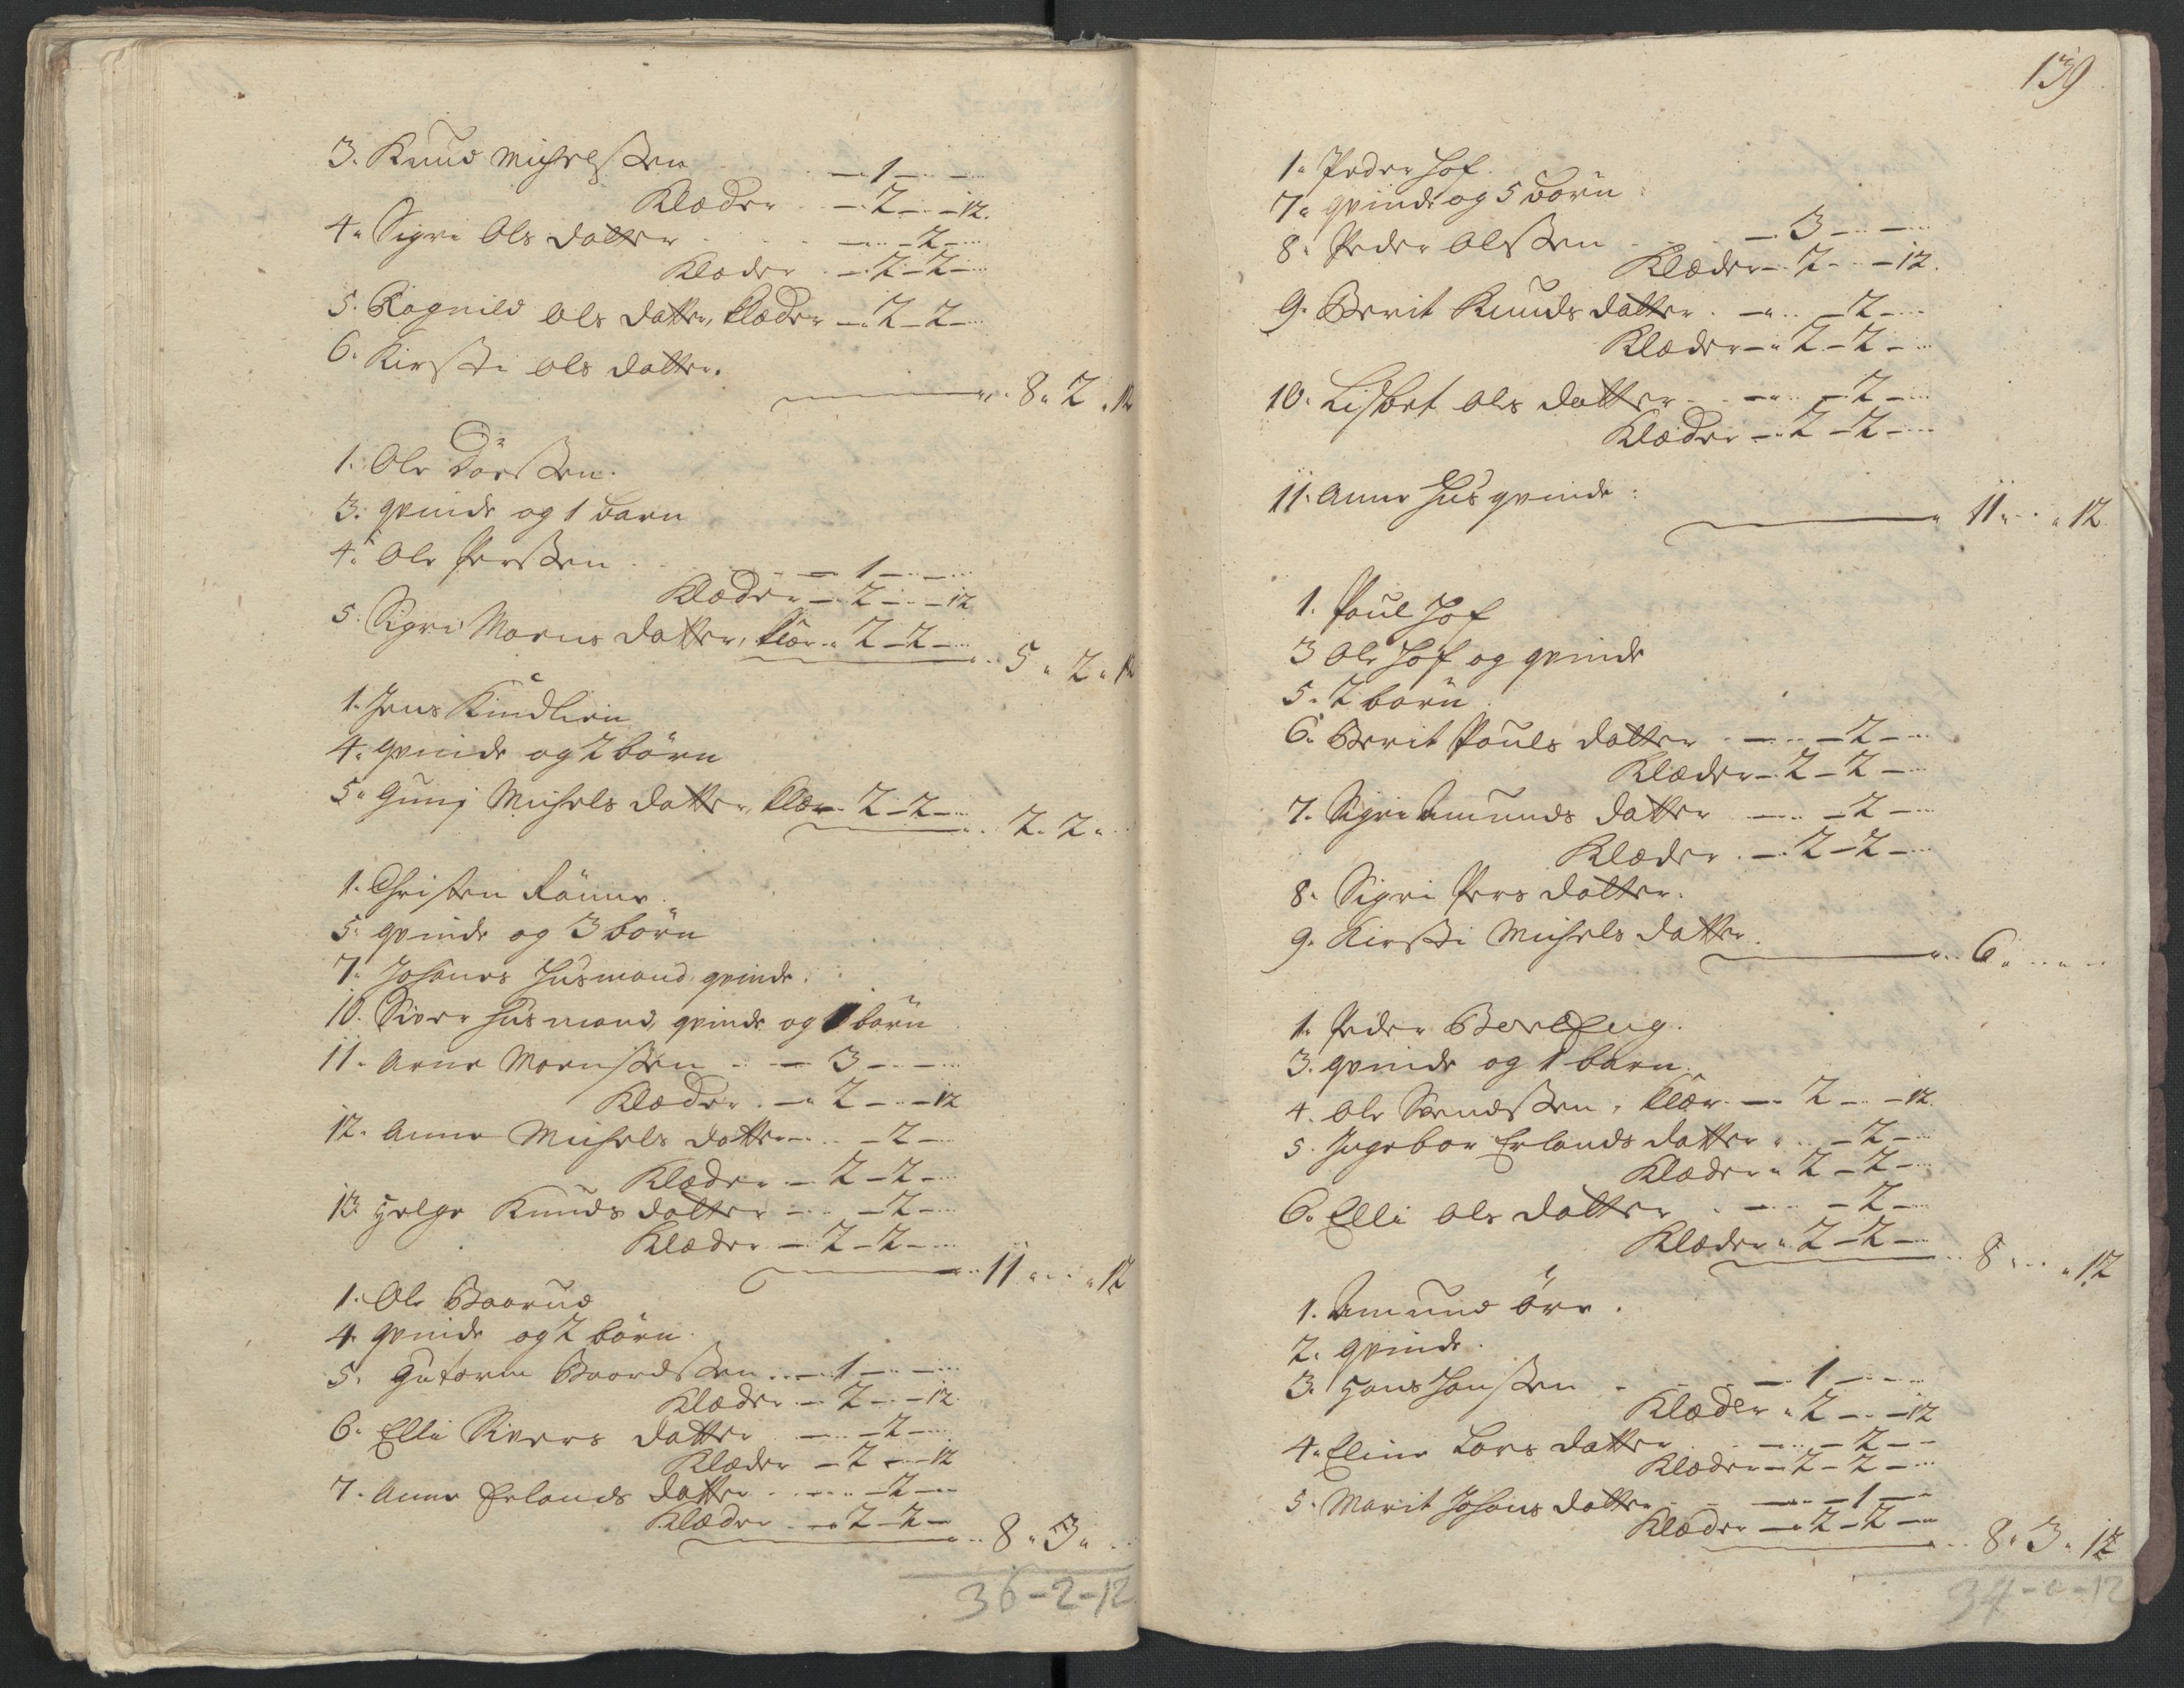 3. Knud Michelssen — 1 — —
Klæder — 2 — — 12.
4. Sigri Ols datter — — 2 —
Klæder — 2 — 2 —
5. Ragnild Ols datter, klæder — 2 — 2 —
6. Kirsti Ols datter.
8. 2. 12
1. Ole
3. qvinde og 1 barn
4. Ole Perssen — 1 — —
Klæder — 2 — — 12
5. Sigri Morens datter, klær 2 — 2 —
5. 2. 12
1. Jens Kindlien
4. qvinde og 2 börn
5. Gunj Michels datter, klær 2 — 2 —
2. 2.
1. Christen Rönne
5. qvinde og 3 börn
7. Johanes Husmand, qvinde.
10. Siver Husmand, qvinde og 1 börn
11. Arne Mornssen — 3 — —
Klæder — 2 — — 12
12. Anne Michels datter — — 2 —
Klæder — 2 — 2 —
13. Helge Knuds datter — — 2 —
Klæder — 2 — 2 —
11. . 12
1. Ole Baarud
4. qvinde og 2 börn.
5. Gutorm Baardssen — 1 — —
Klæder — 2 — — 12.
6. Elli Sivers datter — — 2 —
Klæder — 2 — — 12
7. Anne Erlands datter — — 2 —
Klæder — 2 — 2 —
8. 3.
36-2-12
139
1. Peder Hof.
7. qvinde og 5 börn
8. Peder Olssen — 3 — —
Klæder — 2 — — 12.
9. Berit Knuds datter — — 2 —
Klæder — 2 — 2 —
10. Lisbet Ols datter — — 2 —
Klæder — 2 — 2 —
11. Anne Husqvinde:
11. . 12
1. Poul Hof
3 Ole Hof og qvinde
5. 2 börn.
6. Berit Pouls datter — — 2 —
Klæder — 2 — 2 —
7. Sigri Amunds datter — — 2 —
Klæder — 2 — 2 —
8. Sigri Pers datter.
9. Kirsti Michels datter.
6.
1. Peder
3. qvinde og 1 barn.
4. Ole Svendssen, klær — 2 — — 12.
5. Ingebor Erlands datter — 2 —
Klæder 2 — 2 —
6. Elli Ols datter — — 2 —
Klæder 2 — 2 —
8. . 12
1. Amund Öre.
2. qvinde.
3. Hans Hanssen — 1 — —
Klæder 2 — — 12
4. Eline Lars datter — — 2 —
Klæder — 2 — 2 —
5. Marit Johans datter — — 1 —
Klæder — 2 — 2 —
8. 3. 12
34-0-12